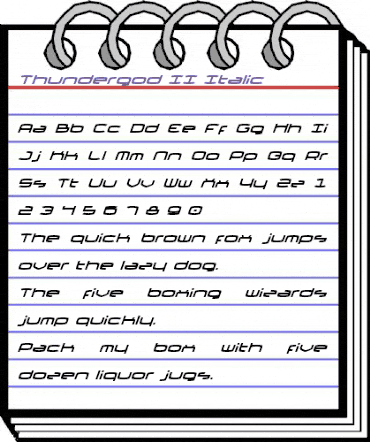 Thundergod II Italic
Aa Bb Cc Dd Ee Ff Gg Hh Ii
Jj Kk Ll Mm Nn Oo Pp Qq Rr
Ss Tt Uu Vv Ww Xx Yy Zz 1
2 3 4 5 6 7 8 9 0
The quick brown fox jumps
over the lazy dog.
The five boxing wizards
jump quickly.
Pack my box with five
dozen liquor jugs.